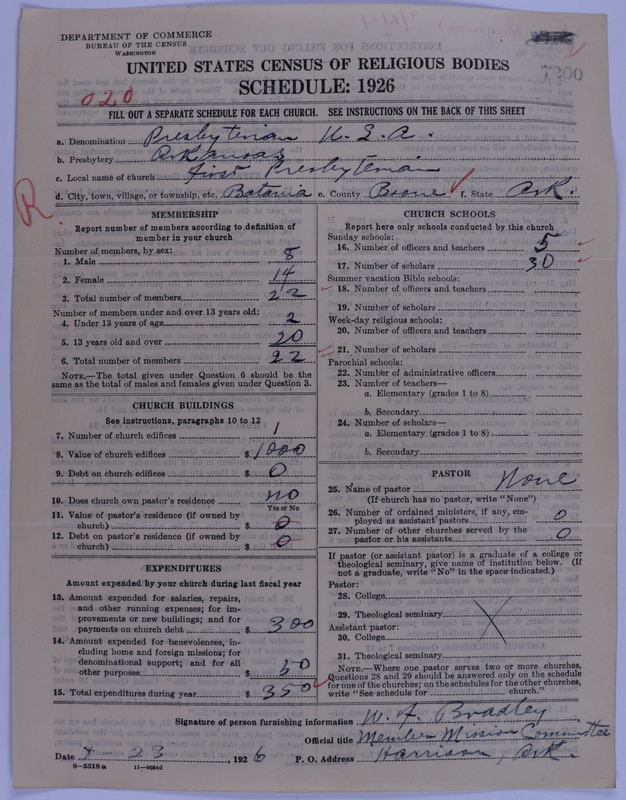 DEPARTMENT OF COMMERCE
BUREAU OF THE CENSUS
WASHINGTON
UNITED STATES CENSUS OF RELIGIOUS BODIES
SCHEDULE: 1926
020
FILL OUT A SEPARATE SCHEDULE FOR EACH CHURCH. SEE INSTRUCTIONS ON THE BACK OF THIS SHEET
a. Denomination Presbyterian U.S.A.
b. Presbytery Arkansas
c. Local name of church First Presbyterian
d. City, town, village, or township, etc. Batavia e. County Boone f. State Ark.
R
MEMBERSHIP
Report number of members according to definition of
member in your church
Number of members, by sex:
1. Male 8
2. Female 14
3. Total number of members 22
Number of members under and over 13 years old:
4. Under 13 years of age 2
5. 13 years old and over 20
6. Total number of members 22
NOTE.—The total given under Question 6 should be
same as the total of males and females given under Question 3.
CHURCH BUILDINGS
See instructions, paragraphs 10 to 12
7. Number of church edifices 1
8. Value of church edifices $ 1000
9. Debt on church edifices $ 0
10. Does church own pastor's residence no
Yes or No
11. Value of pastor's residence (if owned by
church) $ 0
12. Debt on pastor's residence (if owned by
church) $ 0
EXPENDITURES
Amount expended by your church during last fiscal year
13. Amount expended for salaries, repairs,
and other running expenses; for im-
provements or new buildings; and for
payments on church debt $ 300
14. Amount expended for benevolences, in-
cluding home and foreign missions; for
denominational support; and for all
other purposes $ 50
15. Total expenditures during year $ 350
CHURCH SCHOOLS
Report here only schools conducted by this church
Sunday schools:
16. Number of officers and teachers 5
17. Number of scholars 30
Summer vacation Bible schools:
18. Number of officers and teachers
19. Number of scholars
Week-day religious schools:
20. Number of officers and teachers
21. Number of scholars
Parochial schools:
22. Number of administrative officers
23. Number of teachers—
a. Elementary (grades 1 to 8)
b. Secondary
24. Number of scholars—
a. Elementary (grades 1 to 8)
b. Secondary
PASTOR
25. Name of pastor None
(If church has no pastor, write "None")
26. Number of ordained ministers, if any, em-
ployed as assistant pastors 0
27. Number of other churches served by the
pastor or his assistants 0
If pastor (or assistant pastor) is a graduate of a college or
theological seminary, give name of institution below. (If
not a graduate, write "No" in the space indicated.)
Pastor:
28. College
29. Theological seminary
Assistant pastor:
30. College
31. Theological seminary
NOTE.—Where one pastor serves two or more churches,
Questions 28 and 29 should be answered only on the schedule
for one of the churches; on the schedules for the other churches,
write "See schedule for church."
Signature of person furnishing information W. A. Bradley
Official title Member Mission Committee
Date 23, 1926 P. O. Address Harrison, Ark.
8—5518a 11—9054d